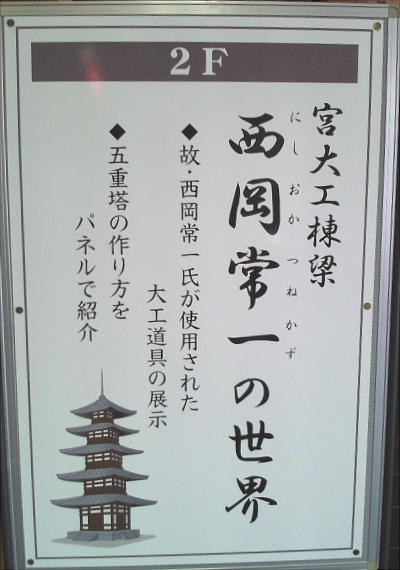 2F
宮大工棟梁
西岡常一の世界
にしおかつねかず
◆故・西岡常一氏が使用された
大工道具の展示
◆五重塔の作り方を
パネルで紹介